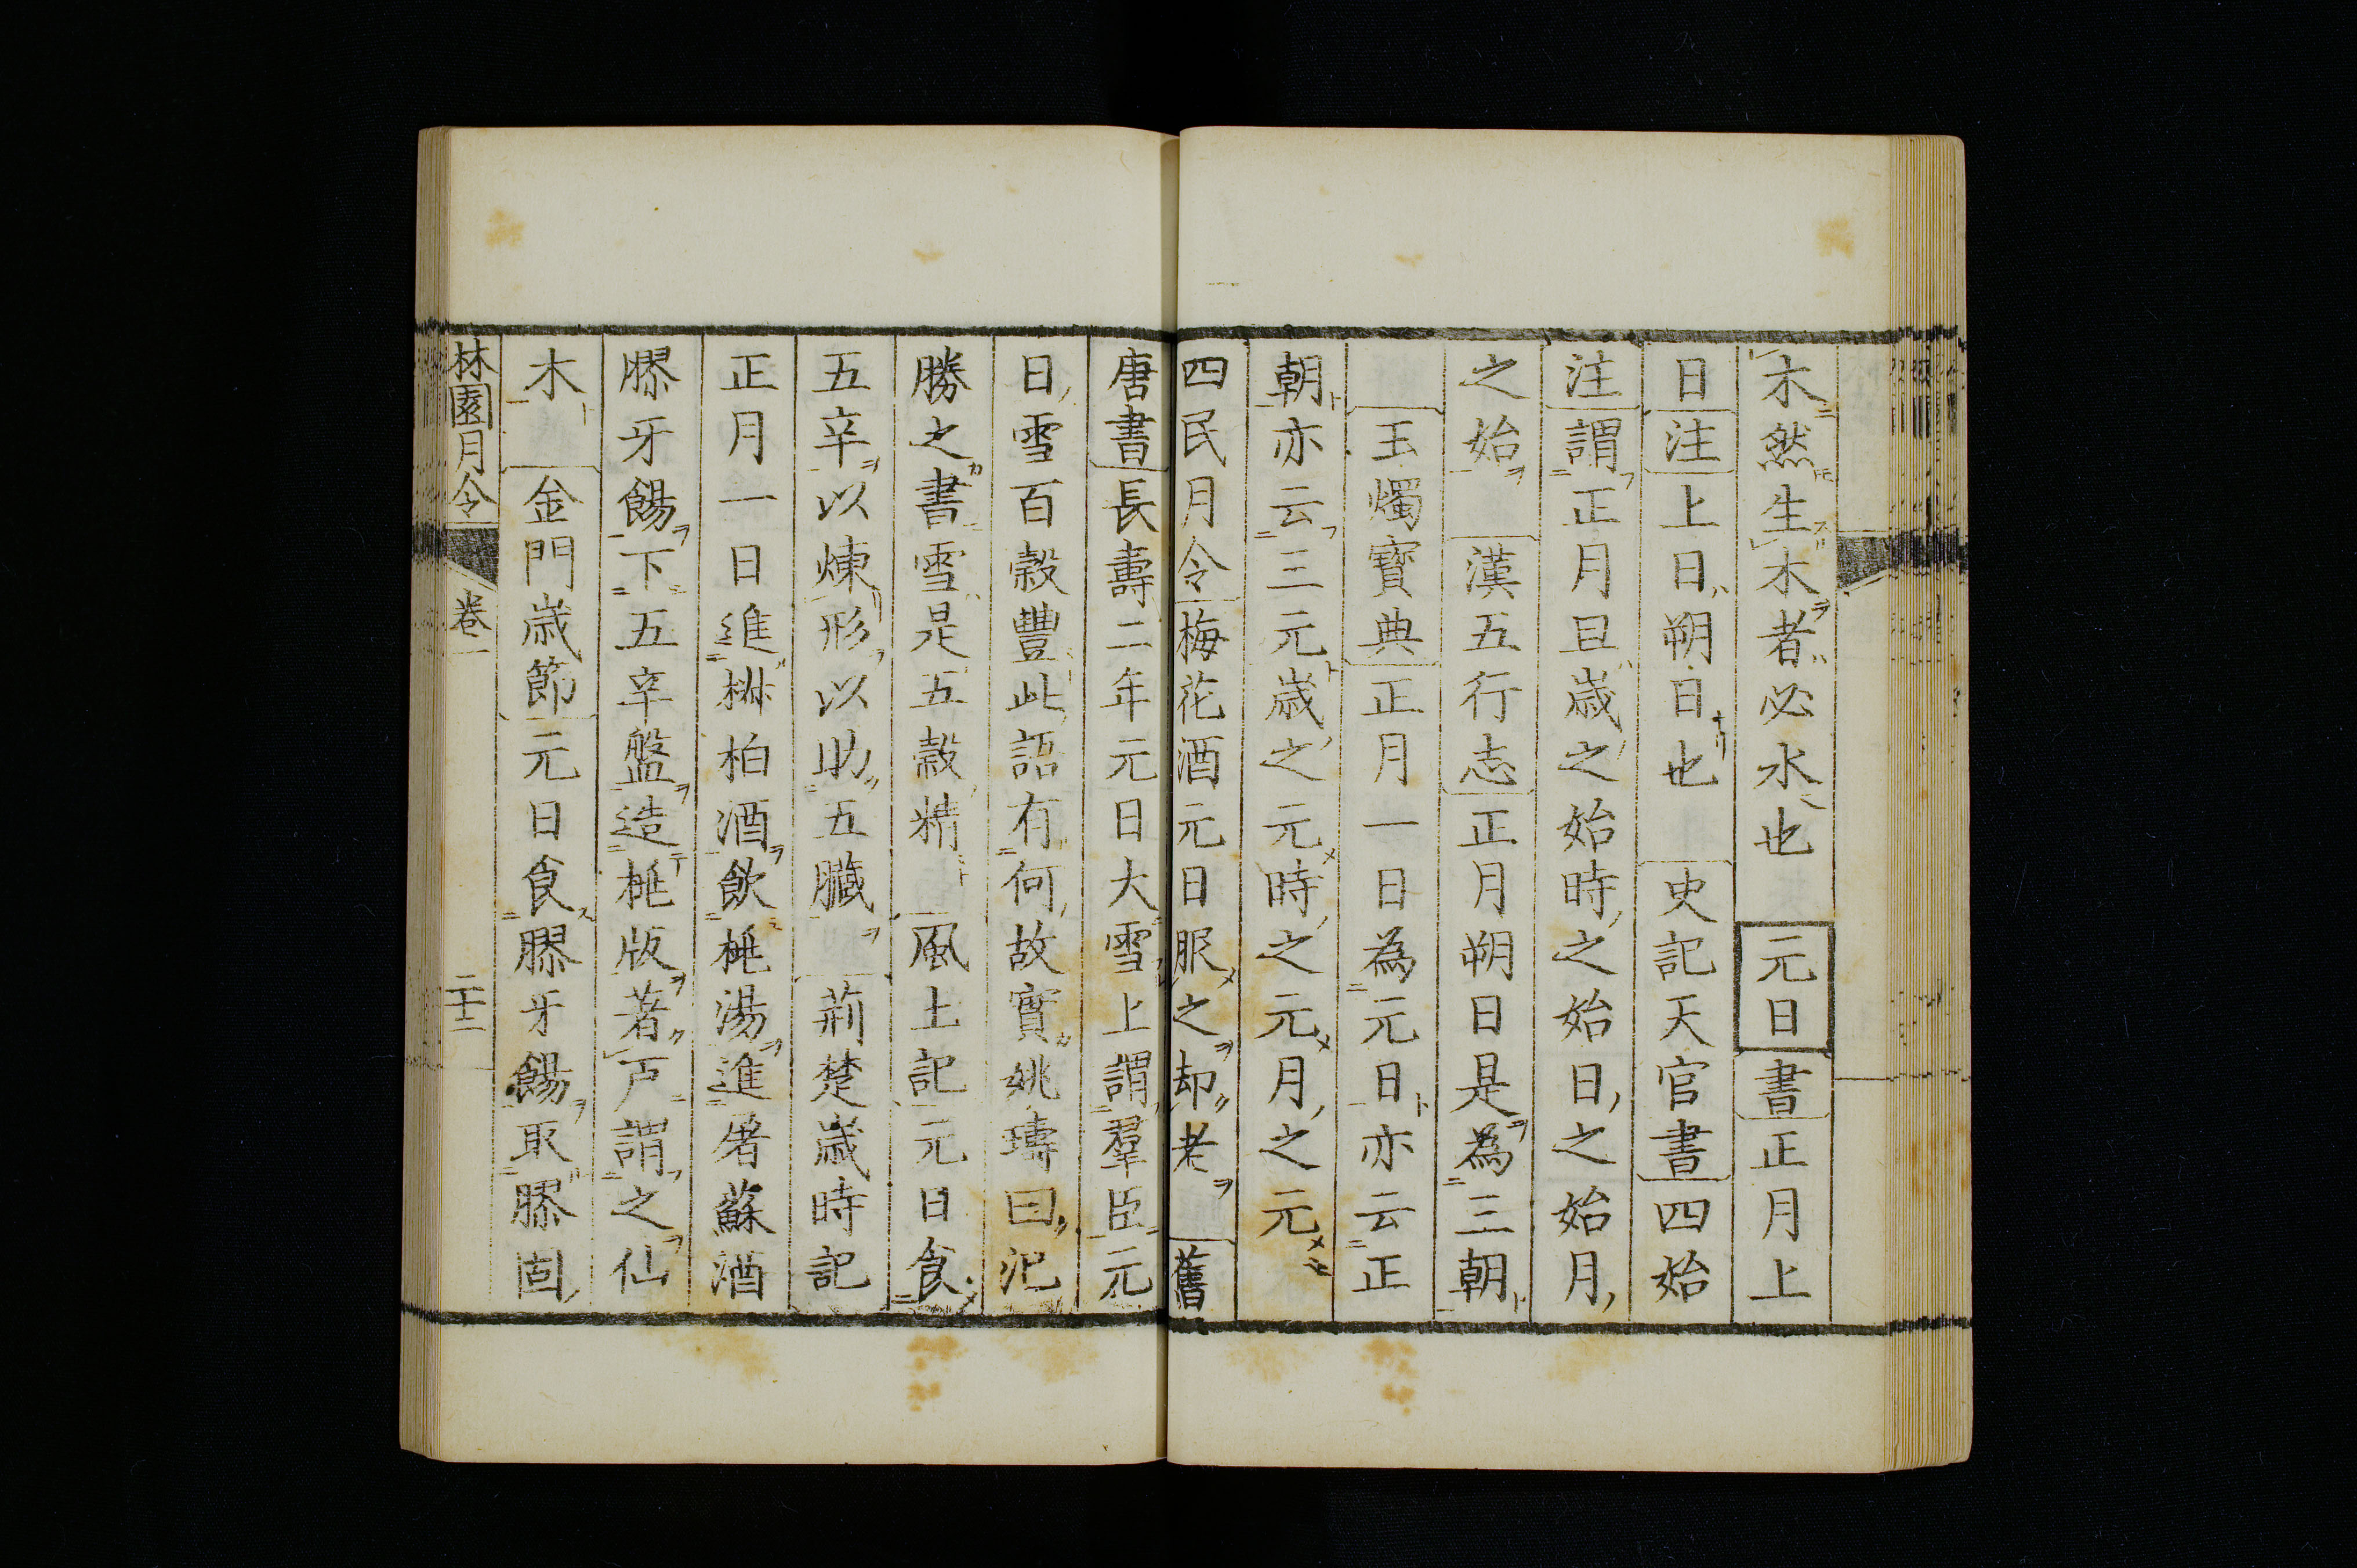 木然生木者必水也 元日 書正月上
日注上日朔日也 史記天官書四始
注謂正月旦歳之始時之始日之始月
之始 漢五行志正月朔日是為三朝
玉燭寶典正月一日為元日亦云正
朝亦云三元歳之元時之元月之元
四民月令梅花酒元日服之却老 舊
唐書長壽二年元日大雪上謂羣臣元
日雪百穀豐此語有何故實姚璹曰氾
勝之書雪是五穀精 風土記元日食
五辛以煉形以助五臓 荊楚歳時記
正月一日進椒柏酒飲桃湯進屠蘇酒
膠牙餳下五辛盤造桃版著戸謂之仙
木 金門歳節元日食膠牙餳取膠固
林園月令 卷一 二十二